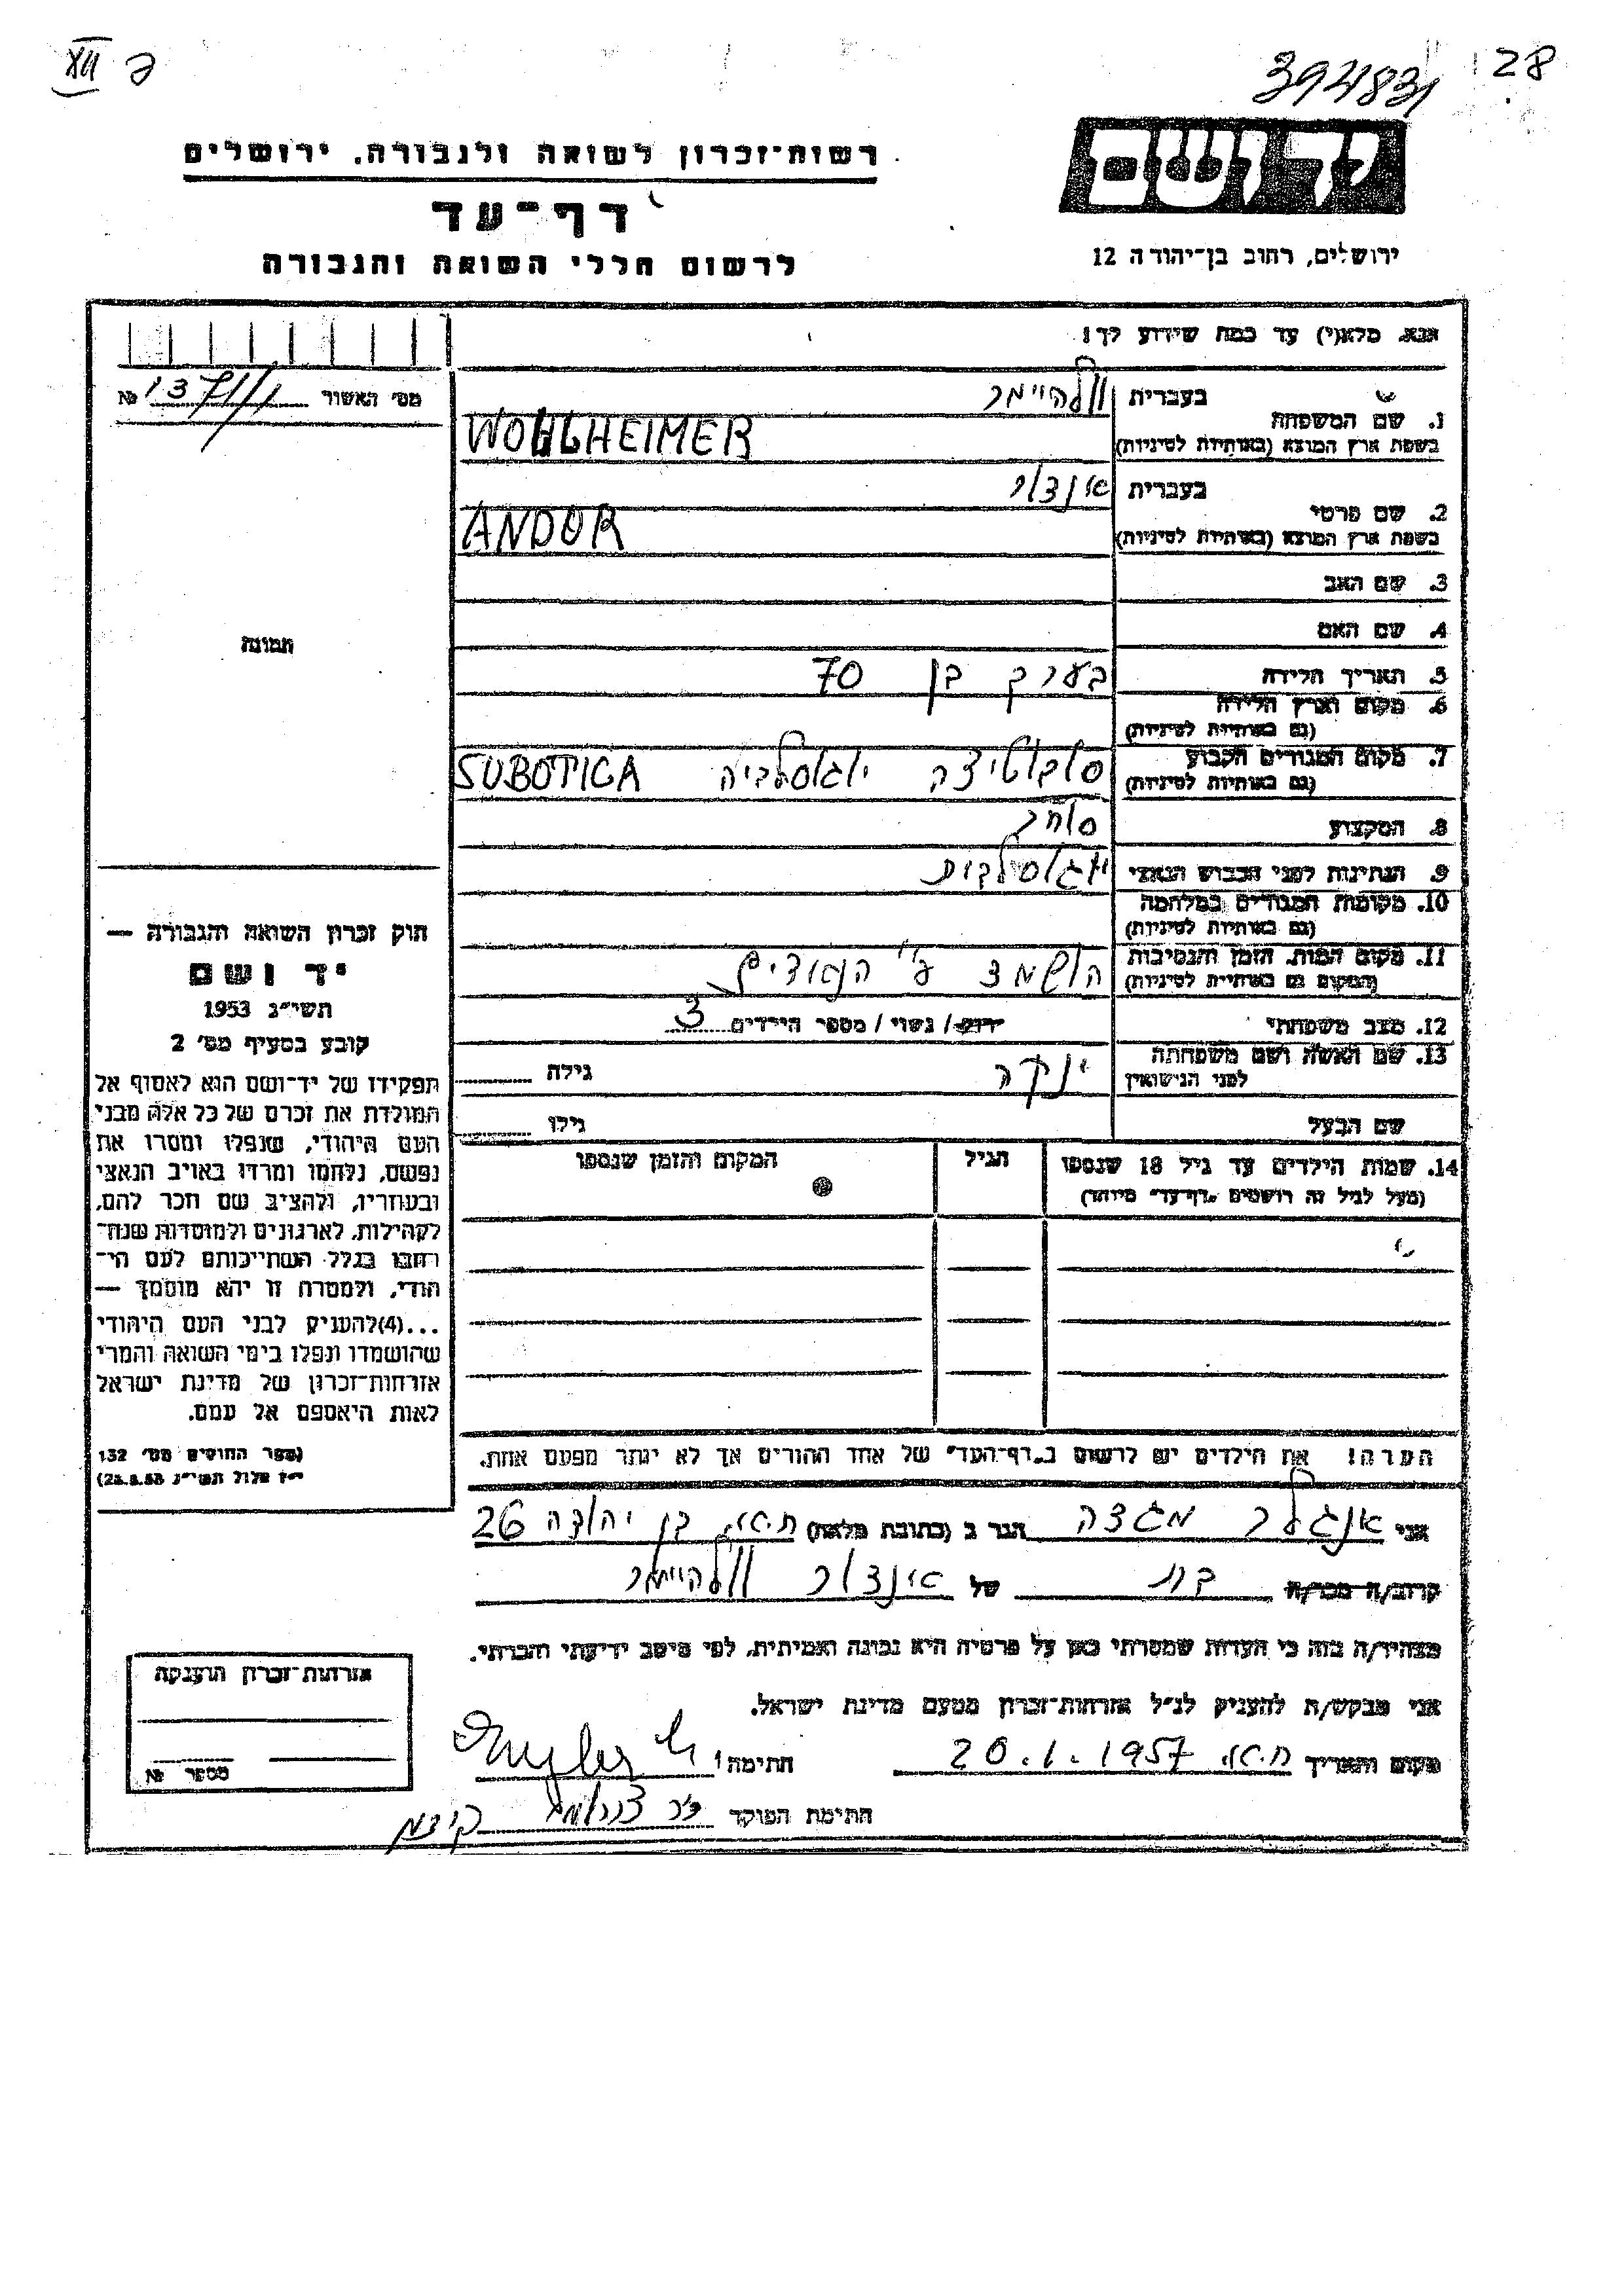 XII
394831
28
יד ושם
ירושלים, רחוב בן־יהודה 12
רשות־זכרון לשואה ולגבורה. ירושלים
דף־עד
לרשום חללי השואה והגבורה
אנא. מלא(י) עד כמה שידוע לך!
1. שם המשפחה בעברית וולהיימר
בשפת ארץ המוצא (באותיות לטיניות) WOHLHEIMER
2. שם פרטי בעברית אנדור
בשפת ארץ המוצא (באותיות לטיניות) ANDOR
3. שם האב
4. שם האם
5. תאריך הלידה בערך בן 70
6. מקום וארץ הלידה
(גם באותיות לטיניות)
7. מקום המגורים הקבוע סובוטיצה יוגוסלביה SUBOTICA
(גם באותיות לטיניות)
8. המקצוע סוחר
9. הנתינות לפני הכבוש הנאצי יוגוסלבית
10. מקומות המגורים במלחמה
(גם באותיות לטיניות)
11. מקום המות. הזמן והנסיבות הושמד ע"י הנאצים
(המקום גם באותיות לטיניות)
12. מצב משפחתי רווק / נשוי / מספר הילדים 3
13. שם האשה ושם משפחתה ינקה גילה
לפני הנישואין
שם הבעל גילו
14. שמות הילדים עד גיל 18 שנספו הגיל המקום והזמן שנספו
(מעל לגיל זה רושמים „דף־עד" מיוחד)
הערה! את הילדים יש לרשום ב„דף־העד" של אחד ההורים אך לא יותר מפעם אחת.
אני אנגלר מגדה הגר ב (כתובת מלאה) ת.א. בן יהודה 26
קרוב/ה מכר/ה בת של אנדור וולהיימר
מצהיר/ה בזה כי העדות שמסרתי כאן על פרטיה היא נכונה ואמיתית. לפי מיטב ידיעתי והכרתי.
אני מבקש/ת להעניק לנ"ל אזרחות־זכרון מטעם מדינת ישראל.
מקום ותאריך ת.א. 20.1.1957 חתימה! Engler M
חתימת הפוקד
מס' האשור № 1371/1
תמונה
חוק זכרון השואה והגבורה —
יד ושם
תשי"ג 1953
קובע בסעיף מס' 2
תפקידו של יד־ושם הוא לאסוף אל
המולדת את זכרם של כל אלה מבני
העם היהודי, שנפלו ומסרו את
נפשם, נלחמו ומרדו באויב הנאצי
ובעוזריו, ולהציב שם וזכר להם,
לקהילות, לארגונים ולמוסדות שנח־
רבו בגלל השתייכותם לעם הי־
הודי, ולמטרה זו יהא מוסמך —
...(4)להעניק לבני העם היהודי
שהושמדו ונפלו בימי השואה והמרי
אזרחות־זכרון של מדינת ישראל
לאות היאספם אל עמם.
(ספר החוקים מס' 132
י"ז אלול תשי"ג 28.8.53)
אזרחות־זכרון הוענקה
מספר №